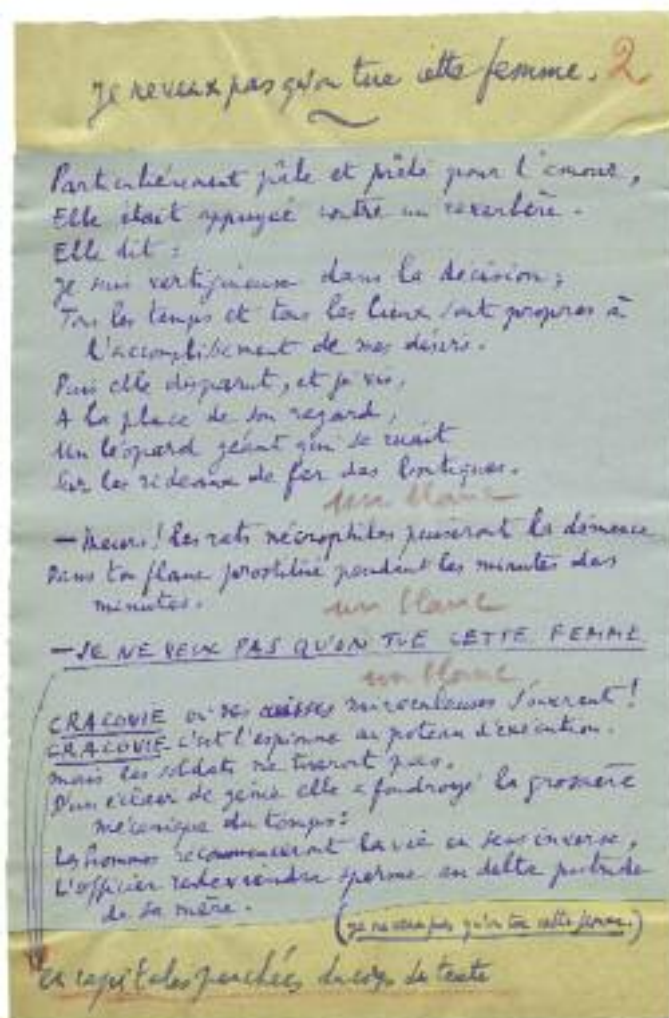 Je ne veux pas qu'on tue cette femme. 2
Particulièrement pâle et prête pour l'amour,
Elle était appuyée contre un réverbère.
Elle dit :
Je suis vertigineuse dans la décision ;
Tous les temps et tous les lieux sont propres à
l'accomplissement de mes désirs.
Puis elle disparut, et je vis,
A la place de son regard,
Un léopard géant qui se ruait
Sur les rideaux de fer des boutiques.
un blanc
— Meurs ! Les rats nécrophiles puiseront la démence
Dans ton flanc prostitué pendant les minutes des
minutes.
un blanc
— JE NE VEUX PAS QU'ON TUE CETTE FEMME
un blanc
CRACOVIE où des cuisses miraculeuses s'ouvrent !
CRACOVIE c'est l'espionne au poteau d'exécution.
Mais les soldats ne tireront pas.
D'un éclair de génie elle a foudroyé la grossière
mécanique du temps :
Les hommes recommenceront la vie en sens inverse,
L'officier redeviendra sperme au delta putride
de sa mère.
(Je ne veux pas qu'on tue cette femme.)
en capitales penchées du corps du texte